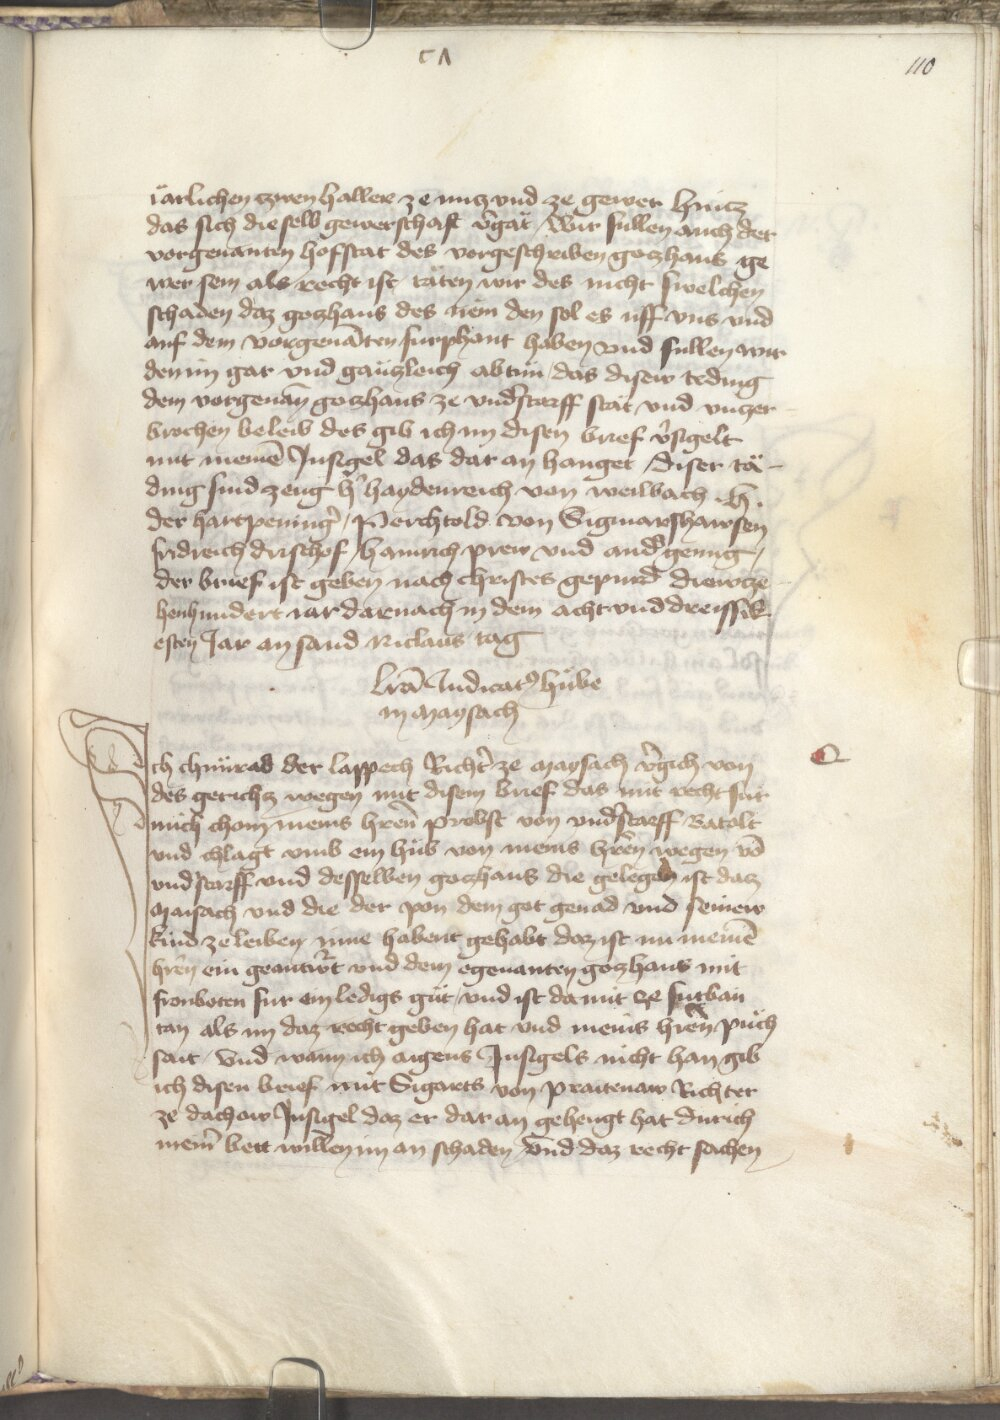 110
iärlichen zwen haller ze nutz vnd ze gewer hintz
das sich die selb gewerschaft v̓gät / Wir sullen auch der
vorgenanten hofstat des vorgeschriben gotzhaus ge
wer sein als recht ist / täten wir des nicht swelchen
schaden daz gotzhaus des näm den sol es uff vns vnd
auf dem vorgenāten furphant haben vnd sullen wir
den im gar vnd gäntzleich ab tün / das disew teding
dem vorgenan̄ gotzhaus ze vnd̓starff stät vnd vnzer
brochen beleib des gib ich im disen brief v̓sigelt
mit meinē Insigel das dar an hanget / diser tä-
ding sind zeug h̓ haydenreich von weilbach .H.
der hartpening̓ / Perchtold von Sigmarshawsen
fridreich drischof / Hainrich prew vnd and̓ genug /
der brief ist geben nach christes gepurd drewtze-
henhundert iar darnach in dem acht vnd dreissik
esten Jar an sand Niclaus tag
Lrā Iudicat⁹ hůbe
in Maysach
Ich chunrad der lappech Richt̓ ze maysach v̓gich von
des gerichtz wegen mit disem brief das mit recht für
mich chom meins hren̄ Probst von vnd̓starff Batolt
vnd chlagt vmb ein hůb von meins hren̄ wegen vō
vnd̓starff vnd desselben gotzhaus die gelegen ist daz
Maisach vnd die der pon dem got genad vnd seinew
kind ze leiben inne habent gehabt daz ist nu meinē
hren̄ ein geantw̓t vnd dem egenanten gotzhaus mit
fronboten fur ein ledigs gůt / vnd ist da mit
tan als im daz recht geben hat vnd meins hren̄ půch
sait / Vnd wann ich aigens Insigels nicht han gib
ich disen brief mit Sigarts von Praitenaw Richter
ze dachaw Insigel daz er dar an gehengt hat durich
mein̄ bett willen im an schaden / Vnd daz recht sachen